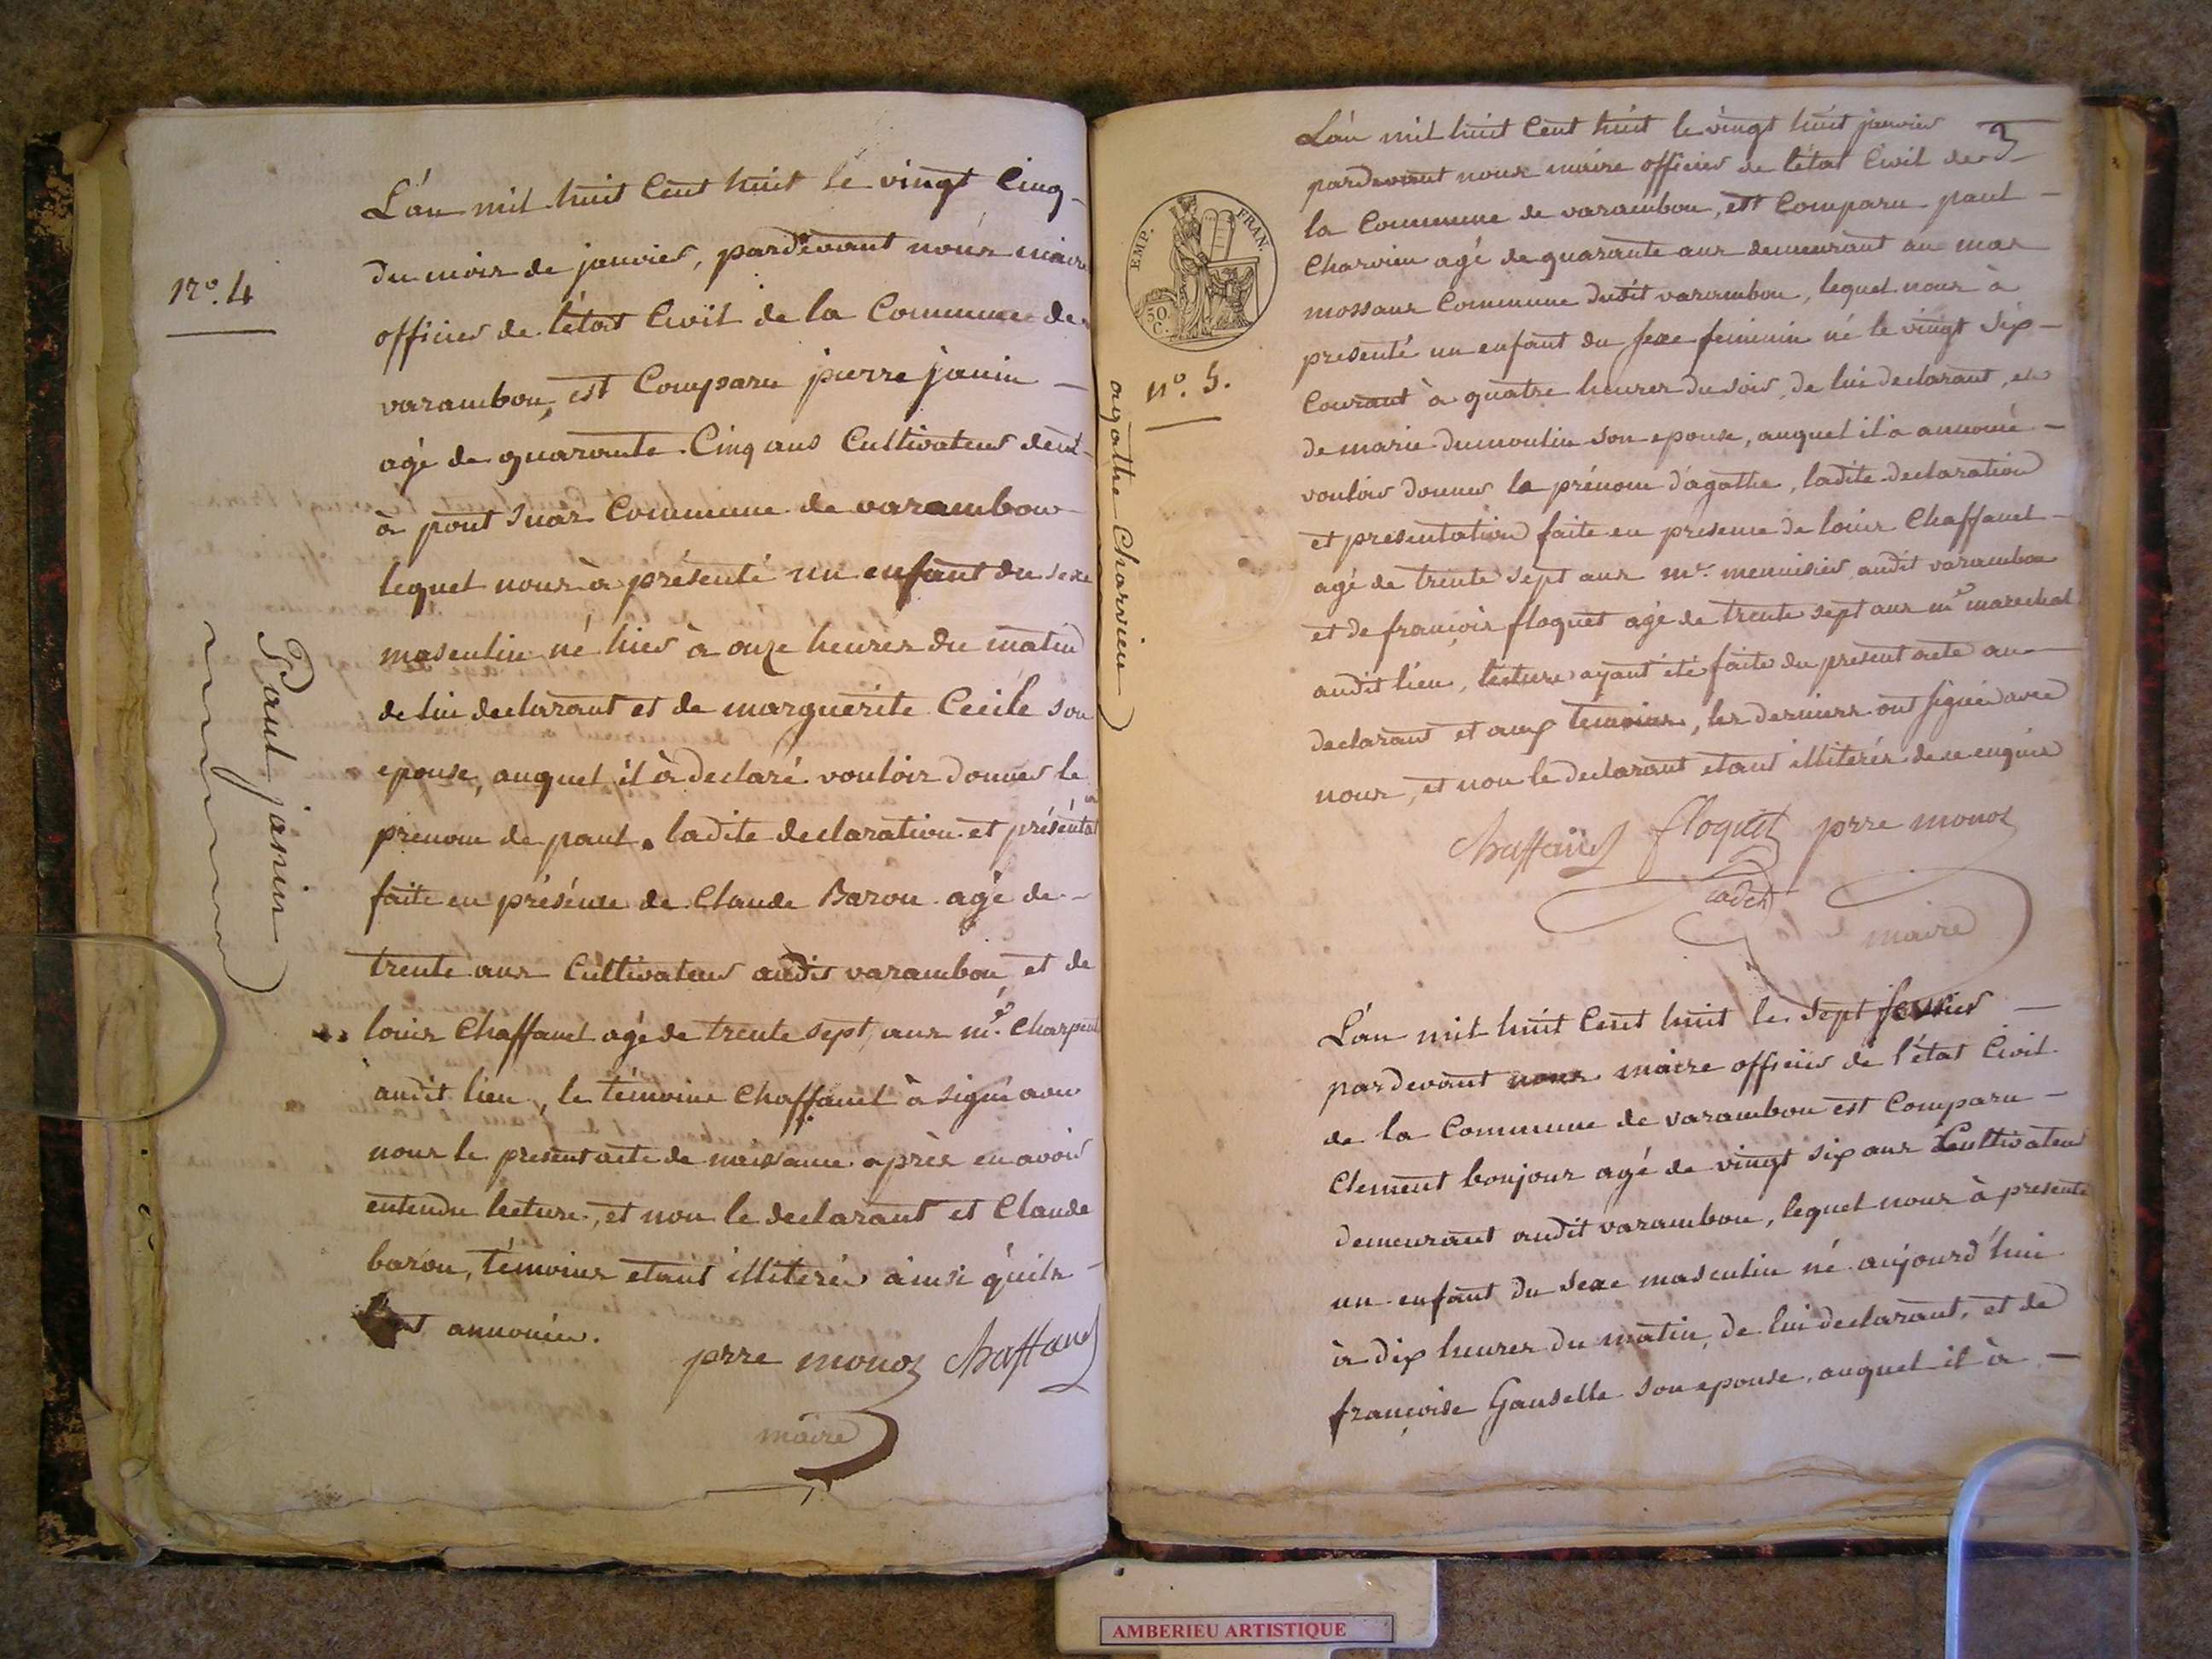 N.o 4
Paul janin
L'an mil huit Cent huit le vingt Cinq
du mois de janvier, pardevant nous maire
officier de l'état Civil de la Commune de
varambon, est Comparu pierre janin
agé de quarante Cinq ans Cultivateur demt
à pont suar Commune de varambon
lequel nous à présenté un enfant du sexe
masculin né hier à onze heures du matin
de lui declarant et de marguerite Cecile son
epouse, auquel il à declaré vouloir donner le
prenom de paul. ladite declaration et présentaon
faite en présénce de Claude Baron agé de
trente ans Cultivateur audit varambon, et de
louis Chaffanel agé de trente sept ans me. Charpent
audit lieu, le témoins Chaffanel à signé avec
nous le present acte de naissance après en avoir
entendu lecture, et non le declarant et Claude
baron, témoins etant illiterés ainsi qu'ils
ont annoncé.
prre monoz Chaffanel
maire
EMP. FRAN.
50 C.
n.o 5.
agathe Charvieu
3
L'an mil huit Cent huit le vingt huit janvier
pardevant nous maire officier de l'état Civil de
la Commune de varambon, est Comparu paul
Charvieu agé de quarante ans demeurant au mas
mossaus Commune dudit varambon, lequel nous à
presenté un enfant du sexe feminin né le vingt six
Courant à quatre heures du soir, de lui declarant, et
de marie dumoulin son epouse, auquel il a annoncé
vouloir donner le prénom d'agathe, ladite declaration
et presentation faite en presence de louis Chaffanel
agé de trente sept ans me. menuisier audit varambon
et de françois floquet agé de trente sept ans me marechal
audit lieu, lecture ayant été faite du present acte au
declarant et aux temoins, les derniers ont signé avec
nous, et non le declarant etant illiterés de ce enquis
Chaffanel floquet prre monoz
cadet
maire
L'an mil huit Cent huit le sept fevrier
pardevant nous maire officier de l'état Civil
de la Commune de varambon est Comparu
Clement bonjour agé de vingt six ans Cultivateur
demeurant audit varambon, lequel nous à presenté
un enfant du sexe masculin né aujourd'hui
à dix heures du matin, de lui declarant, et de
françoise Gauselle son epouse, auquel il à
AMBERIEU ARTISTIQUE